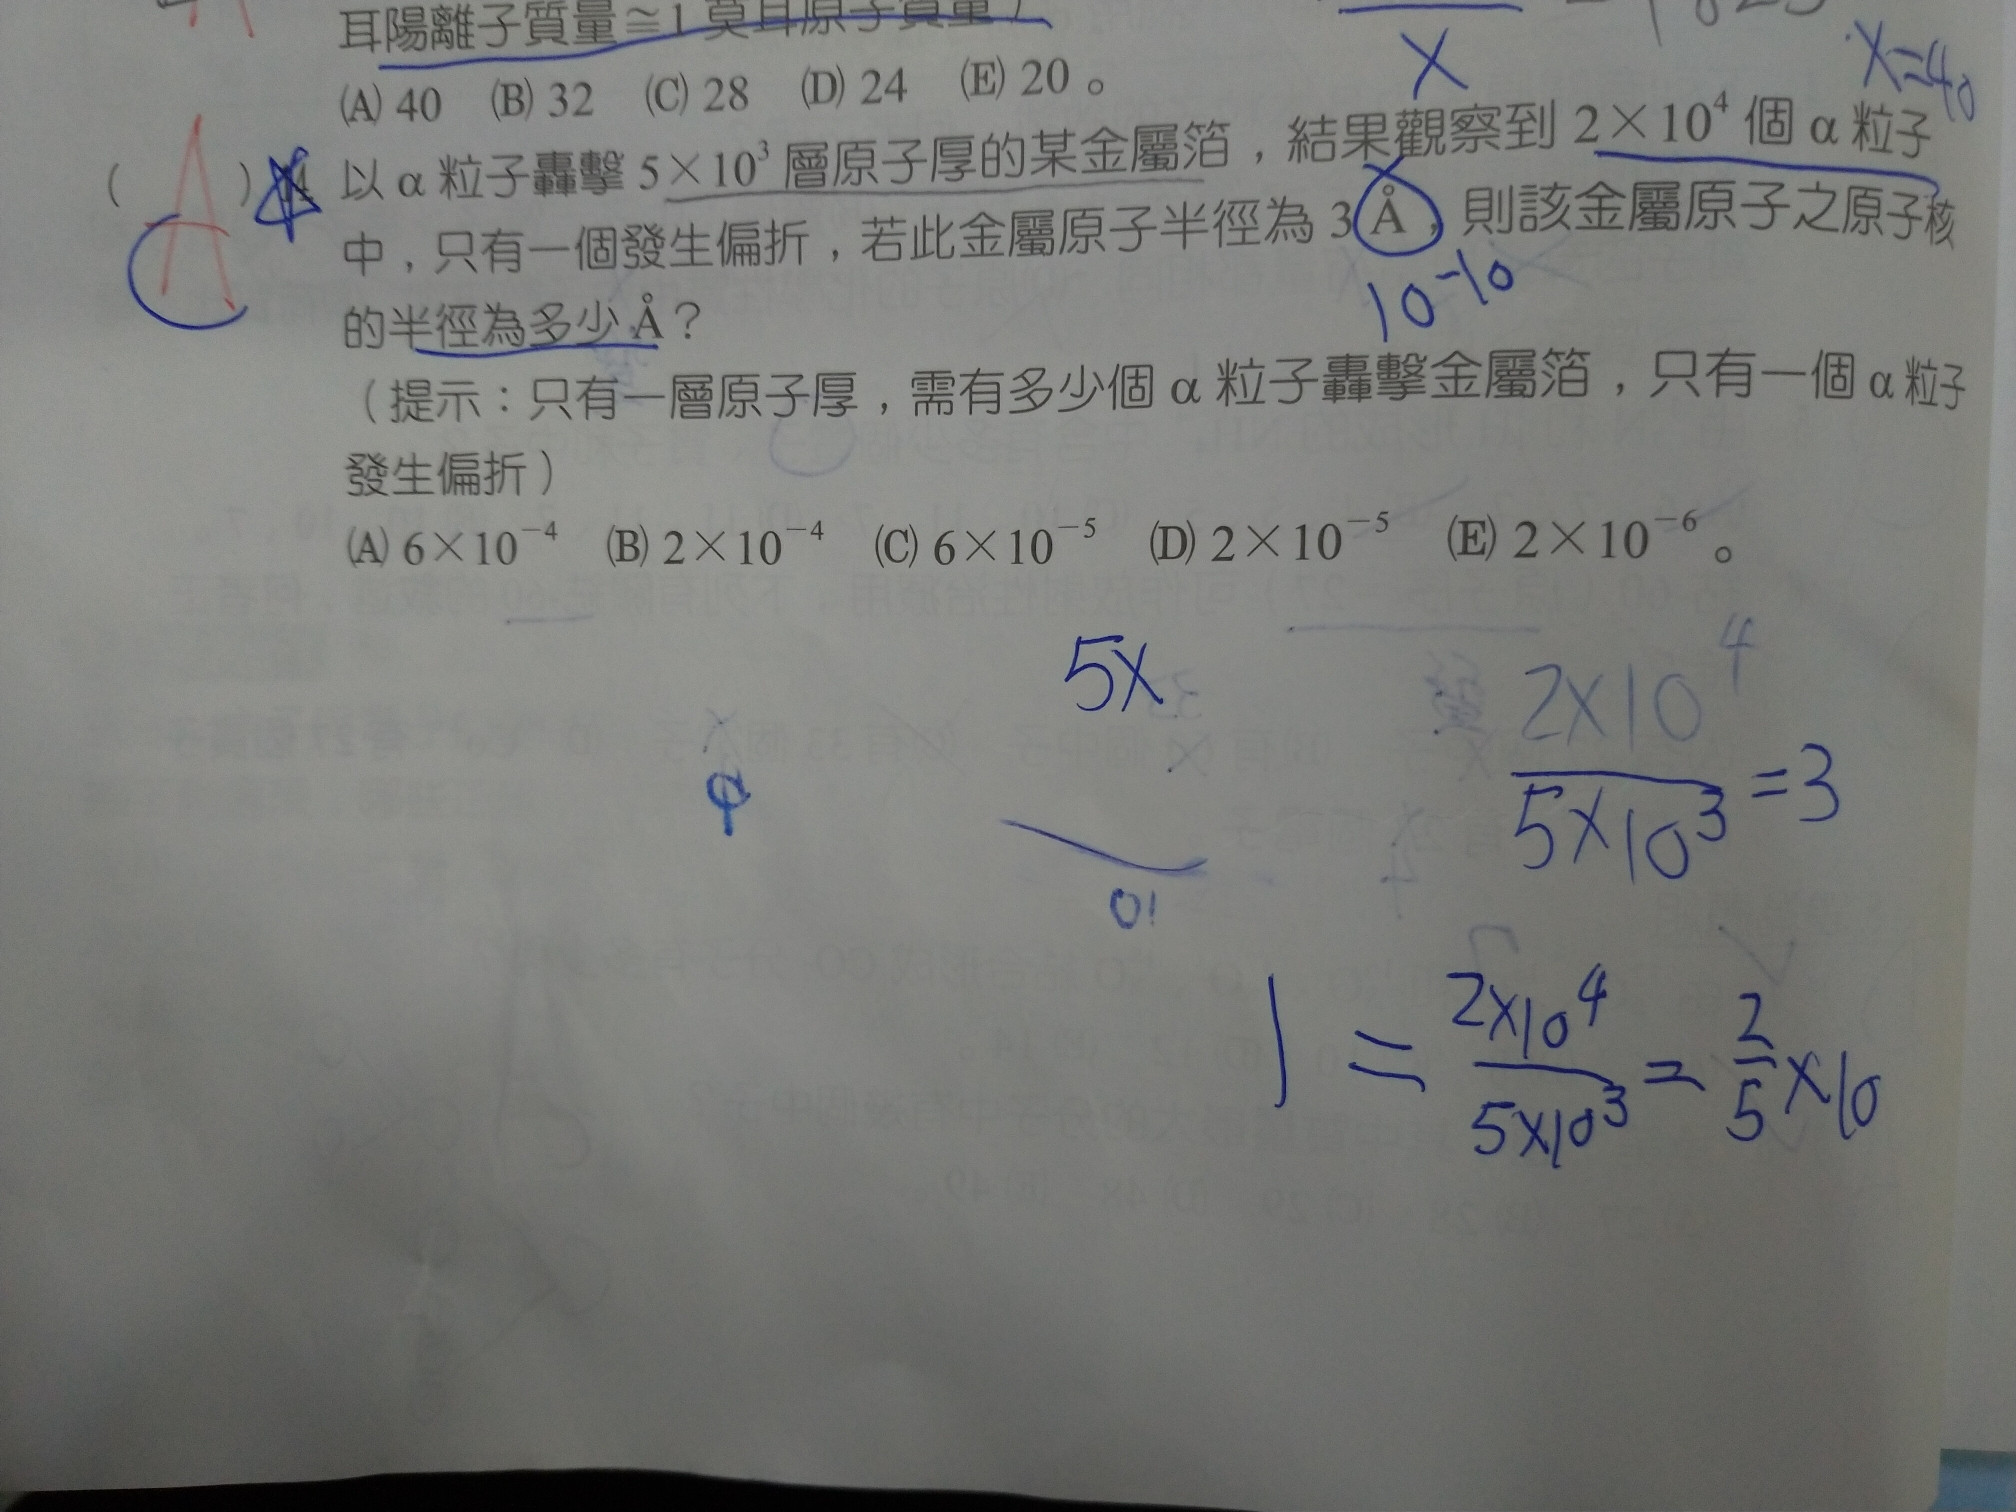 耳陽離子質量≅1 莫耳原子質量)
X
x=40
(A) 40 (B) 32 (C) 28 (D) 24 (E) 20 。
( A ) 以 α 粒子轟擊 5×10³ 層原子厚的某金屬箔，結果觀察到 2×10⁴ 個 α 粒子
中，只有一個發生偏折，若此金屬原子半徑為 3 Å，則該金屬原子之原子核
10⁻¹⁰
的半徑為多少 Å？
（提示：只有一層原子厚，需有多少個 α 粒子轟擊金屬箔，只有一個 α 粒子
發生偏折）
(A) 6×10⁻⁴ (B) 2×10⁻⁴ (C) 6×10⁻⁵ (D) 2×10⁻⁵ (E) 2×10⁻⁶ 。
5x
2×10⁴
5×10³ =3
1 = 2×10⁴ / 5×10³ = 2/5 ×10